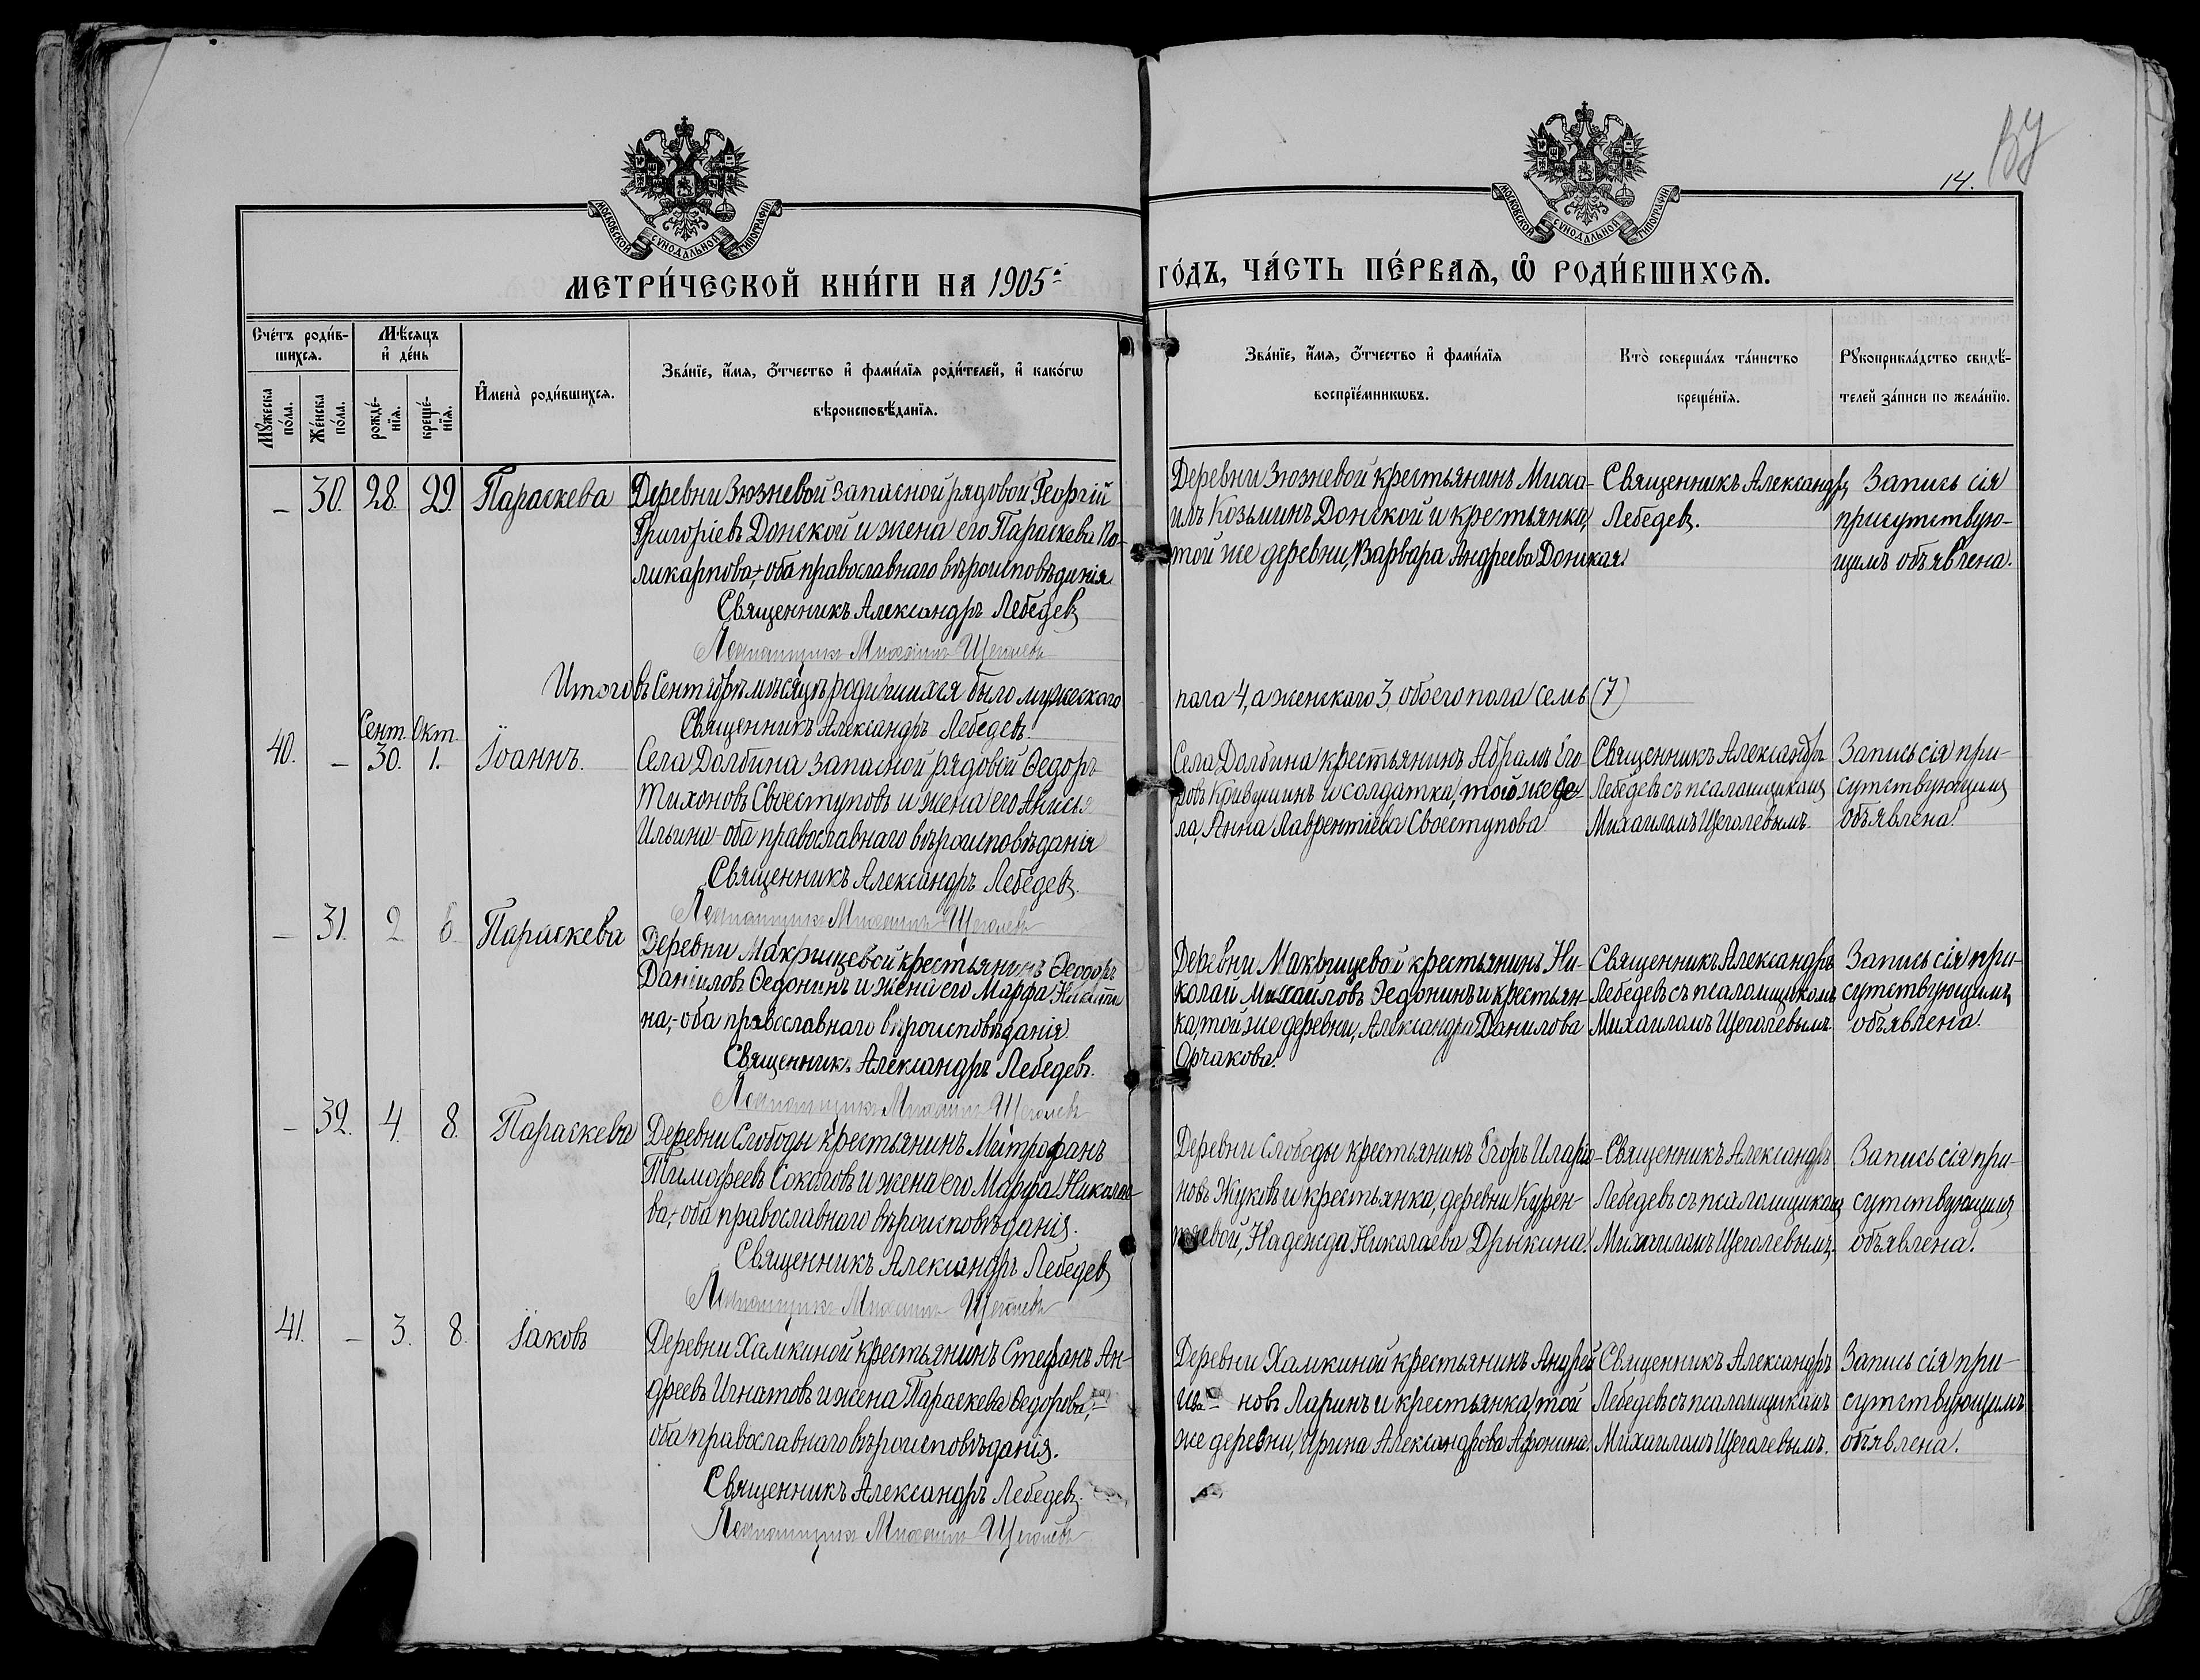 14.
МОСКОВСКОЙ СѴНОДАЛЬНОЙ ТИПОГРАФІИ
МОСКОВСКОЙ СѴНОДАЛЬНОЙ ТИПОГРАФІИ
МЕТРИ́ЧЕСКОЙ КНИ́ГИ НА 1905й
ГО́ДЪ, ЧА́СТЬ ПЕ́РВАЯ, Ѡ РОДИ́ВШИХСЯ.
Сче́тъ роди́в-
шихся.
Мѣсяцъ
и де́нь
Мꙋжеска по́ла.
Же́нска по́ла.
рожде́-
нїя.
креще́-
нїя.
Имена̀ роди́вшихся.
Зва́нїе, и́мя, ѻ҆́тчество и фами́лїя роди́телей, и како́гѡ
вѣроисповѣ́данїя.
Зва́нїе, и́мя, ѻ҆́тчество и фами́лїя
воспрїе́мникѡвъ.
Кто̀ соверша́лъ та́инство
креще́нїя.
Рꙋкоприкла́дство свидѣ́-
телей за́писи по жела́нїю.
– 30. 28. 29. Параскева
Деревни Зюзневой запасной рядовой Георгій
Григоріевъ Донской и жена его Параскева По-
ликарпова,- оба православнаго вѣроисповѣданія
Священникъ Александръ Лебедевъ
Псаломщикъ Михаилъ Щеголевъ
Деревни Зюзневой крестьянинъ Миха-
илъ Козьминъ Донской и крестьянка,
той же деревни, Варвара Андреева Донская.
Священникъ Александръ
Лебедевъ.
Запись сія
присутствую-
щимъ объявлена.
Итого въ Сентябрѣ мѣсяцѣ родившихся было мужескаго
пола 4, а женскаго 3, обоего пола семь (7)
Священникъ Александръ Лебедевъ.
Сент. Окт.
40. – 30. 1. Іоаннъ.
Села Долбина запасной рядовой Ѳедоръ
Тихоновъ Своеступовъ и жена его Анисья
Ильина- оба православнаго вѣроисповѣданія
Священникъ Александръ Лебедевъ.
Псаломщикъ Михаилъ Щеголевъ
Села Долбина крестьянинъ Абрамъ Его-
ровъ Кривушинъ и солдатка, того же се-
ла, Анна Лаврентіева Своеступова.
Священникъ Александръ
Лебедевъ съ псаломщикомъ
Михаиломъ Щеголевымъ.
Запись сія при-
сутствующимъ
объявлена.
– 31. 2 6 Параскева
Деревни Макрищевой крестьянинъ Ѳеодоръ
Даніиловъ Ѳедонинъ и жена его Марфа Никити
на,- оба православнаго вѣроисповѣданія.
Священникъ Александръ Лебедевъ.
Псаломщикъ Михаилъ Щеголевъ
Деревни Макрищевой крестьянинъ Ни-
колай Михайловъ Ѳедонинъ и крестьян-
ка, той же деревни, Александра Данилова
Орчакова.
Священникъ Александръ
Лебедевъ съ псаломщикомъ
Михаиломъ Щеголевымъ
Запись сія при-
сутствующимъ
объявлена.
– 32. 4. 8. Параскева
Деревни Слободы крестьянинъ Митрофанъ
Тимофеевъ Соколовъ и жена его Марфа Николае-
ва,- оба православнаго вѣроисповѣданія.
Священникъ Александръ Лебедевъ
Псаломщикъ Михаилъ Щеголевъ
Деревни Слободы крестьянинъ Егоръ Иларіо-
новъ Жуковъ и крестьянка, деревни Курен-
Надежда Николаева Дрыкина.
Священникъ Александръ
Лебедевъ съ псаломщикомъ
Михаиломъ Щеголевымъ.
Запись сія при-
сутствующимъ
объявлена.
41. – 3. 8. Іаковъ
Деревни Хамкиной крестьянинъ Стефанъ Ан-
дреевъ Игнатовъ и жена Параскева Ѳедорова,-
оба православнаго вѣроисповѣданія.
Священникъ Александръ Лебедевъ.
Псаломщикъ Михаилъ Щеголевъ
Деревни Хамкиной крестьянинъ Андрей
Ива- новъ Ларинъ и крестьянка, той
же деревни, Ирина Александрова Афонина.
Священникъ Александръ
Лебедевъ съ псаломщикомъ
Михаиломъ Щеголевымъ.
Запись сія при-
сутствующимъ
объявлена.